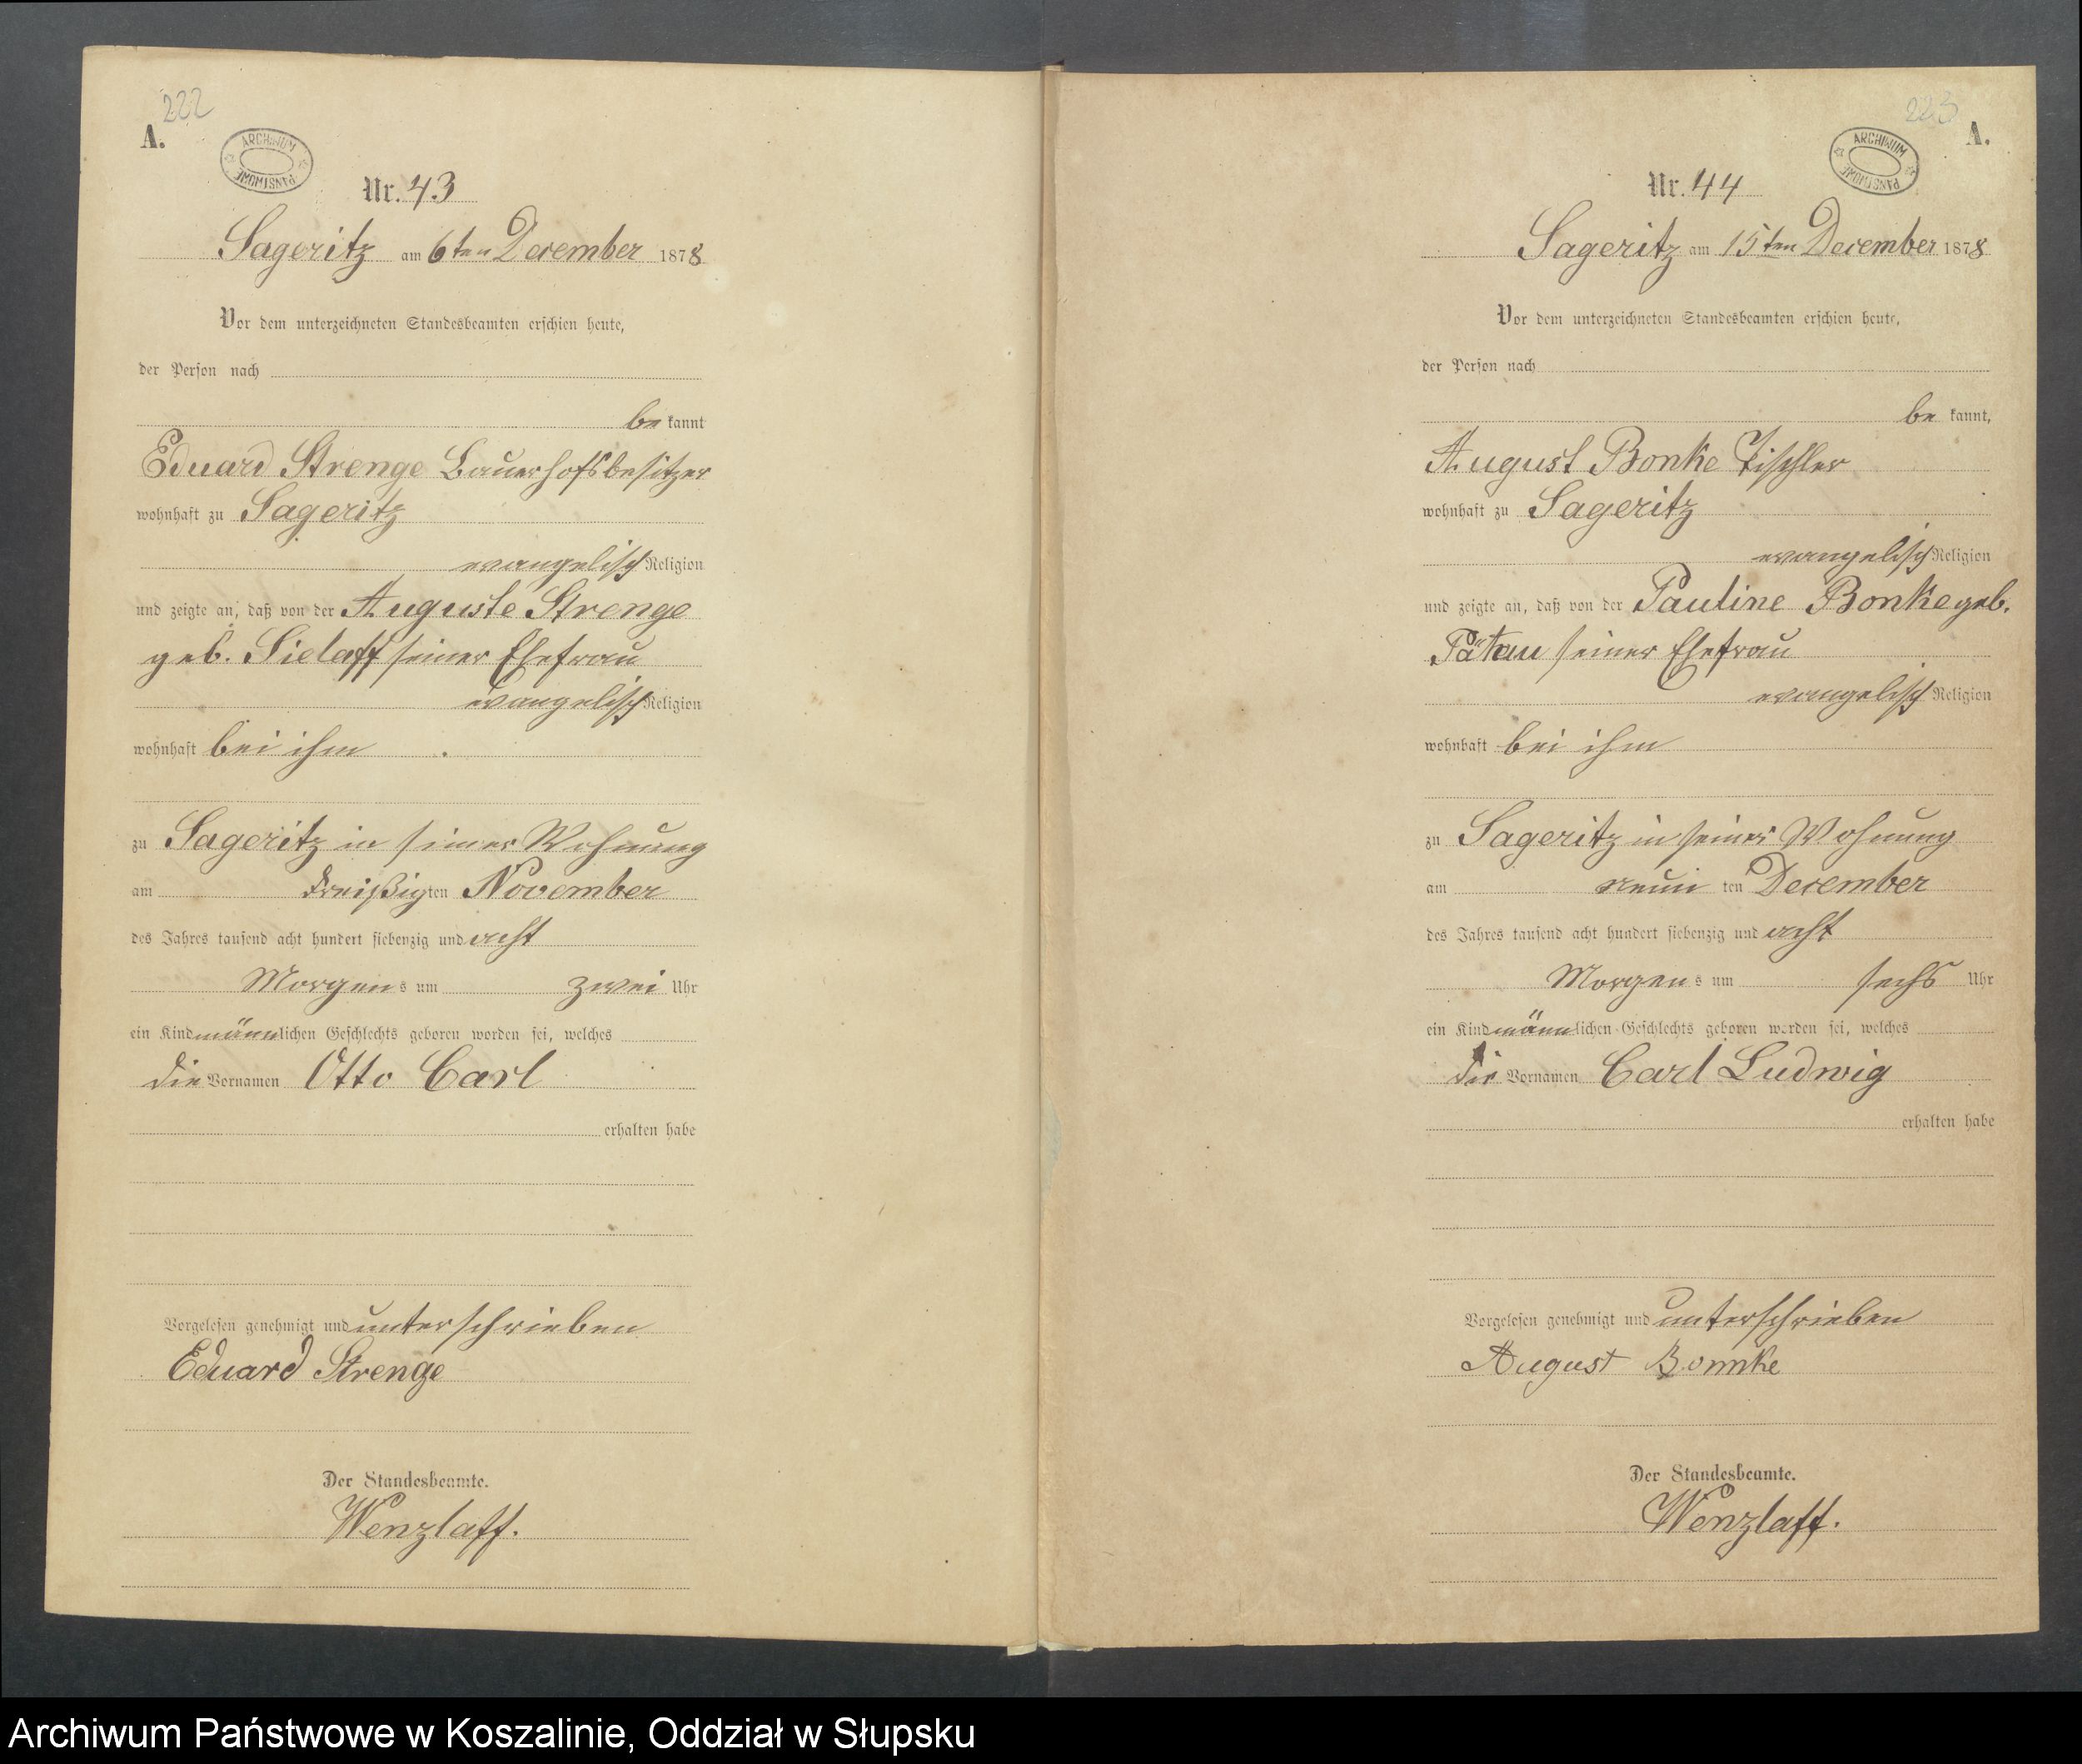 222
A.
ARCHIWUM PAŃSTWOWE
Nr. 43
Sageritz am 6ten December 1878
Vor dem unterzeichneten Standesbeamten erschien heute,
der Person nach
be kannt
Eduard Strenge Bauerhofsbesitzer
wohnhaft zu Sageritz
evangelisch Religion
und zeigte an, daß von der Auguste Strenge
geb. Sielaff seiner Ehefrau
evangelisch Religion
wohnhaft bei ihm
zu Sageritz in seiner Wohnung
am dreißigten November
des Jahres tausend acht hundert siebenzig und acht
Morgens um zwei Uhr
ein Kind männlichen Geschlechts geboren worden sei, welches
die Vornamen Otto Carl
erhalten habe
Vorgelesen genehmigt und unterschrieben
Eduard Strenge
Der Standesbeamte.
Wenzlaff.
223
A.
ARCHIWUM PAŃSTWOWE
Nr. 44
Sageritz am 15ten December 1878
Vor dem unterzeichneten Standesbeamten erschien heute,
der Person nach
be kannt,
August Bonke Tischler
wohnhaft zu Sageritz
evangelisch Religion
und zeigte an, daß von der Pauline Bonke geb.
Pätau seiner Ehefrau
evangelisch Religion
wohnhaft bei ihm
zu Sageritz in seiner Wohnung
am neun ten December
des Jahres tausend acht hundert siebenzig und acht
Morgens um sechs Uhr
ein Kind männlichen Geschlechts geboren worden sei, welches
die Vornamen Carl Ludwig
erhalten habe
Vorgelesen genehmigt und unterschrieben
August Bonnke
Der Standesbeamte.
Wenzlaff.
Archiwum Państwowe w Koszalinie, Oddział w Słupsku